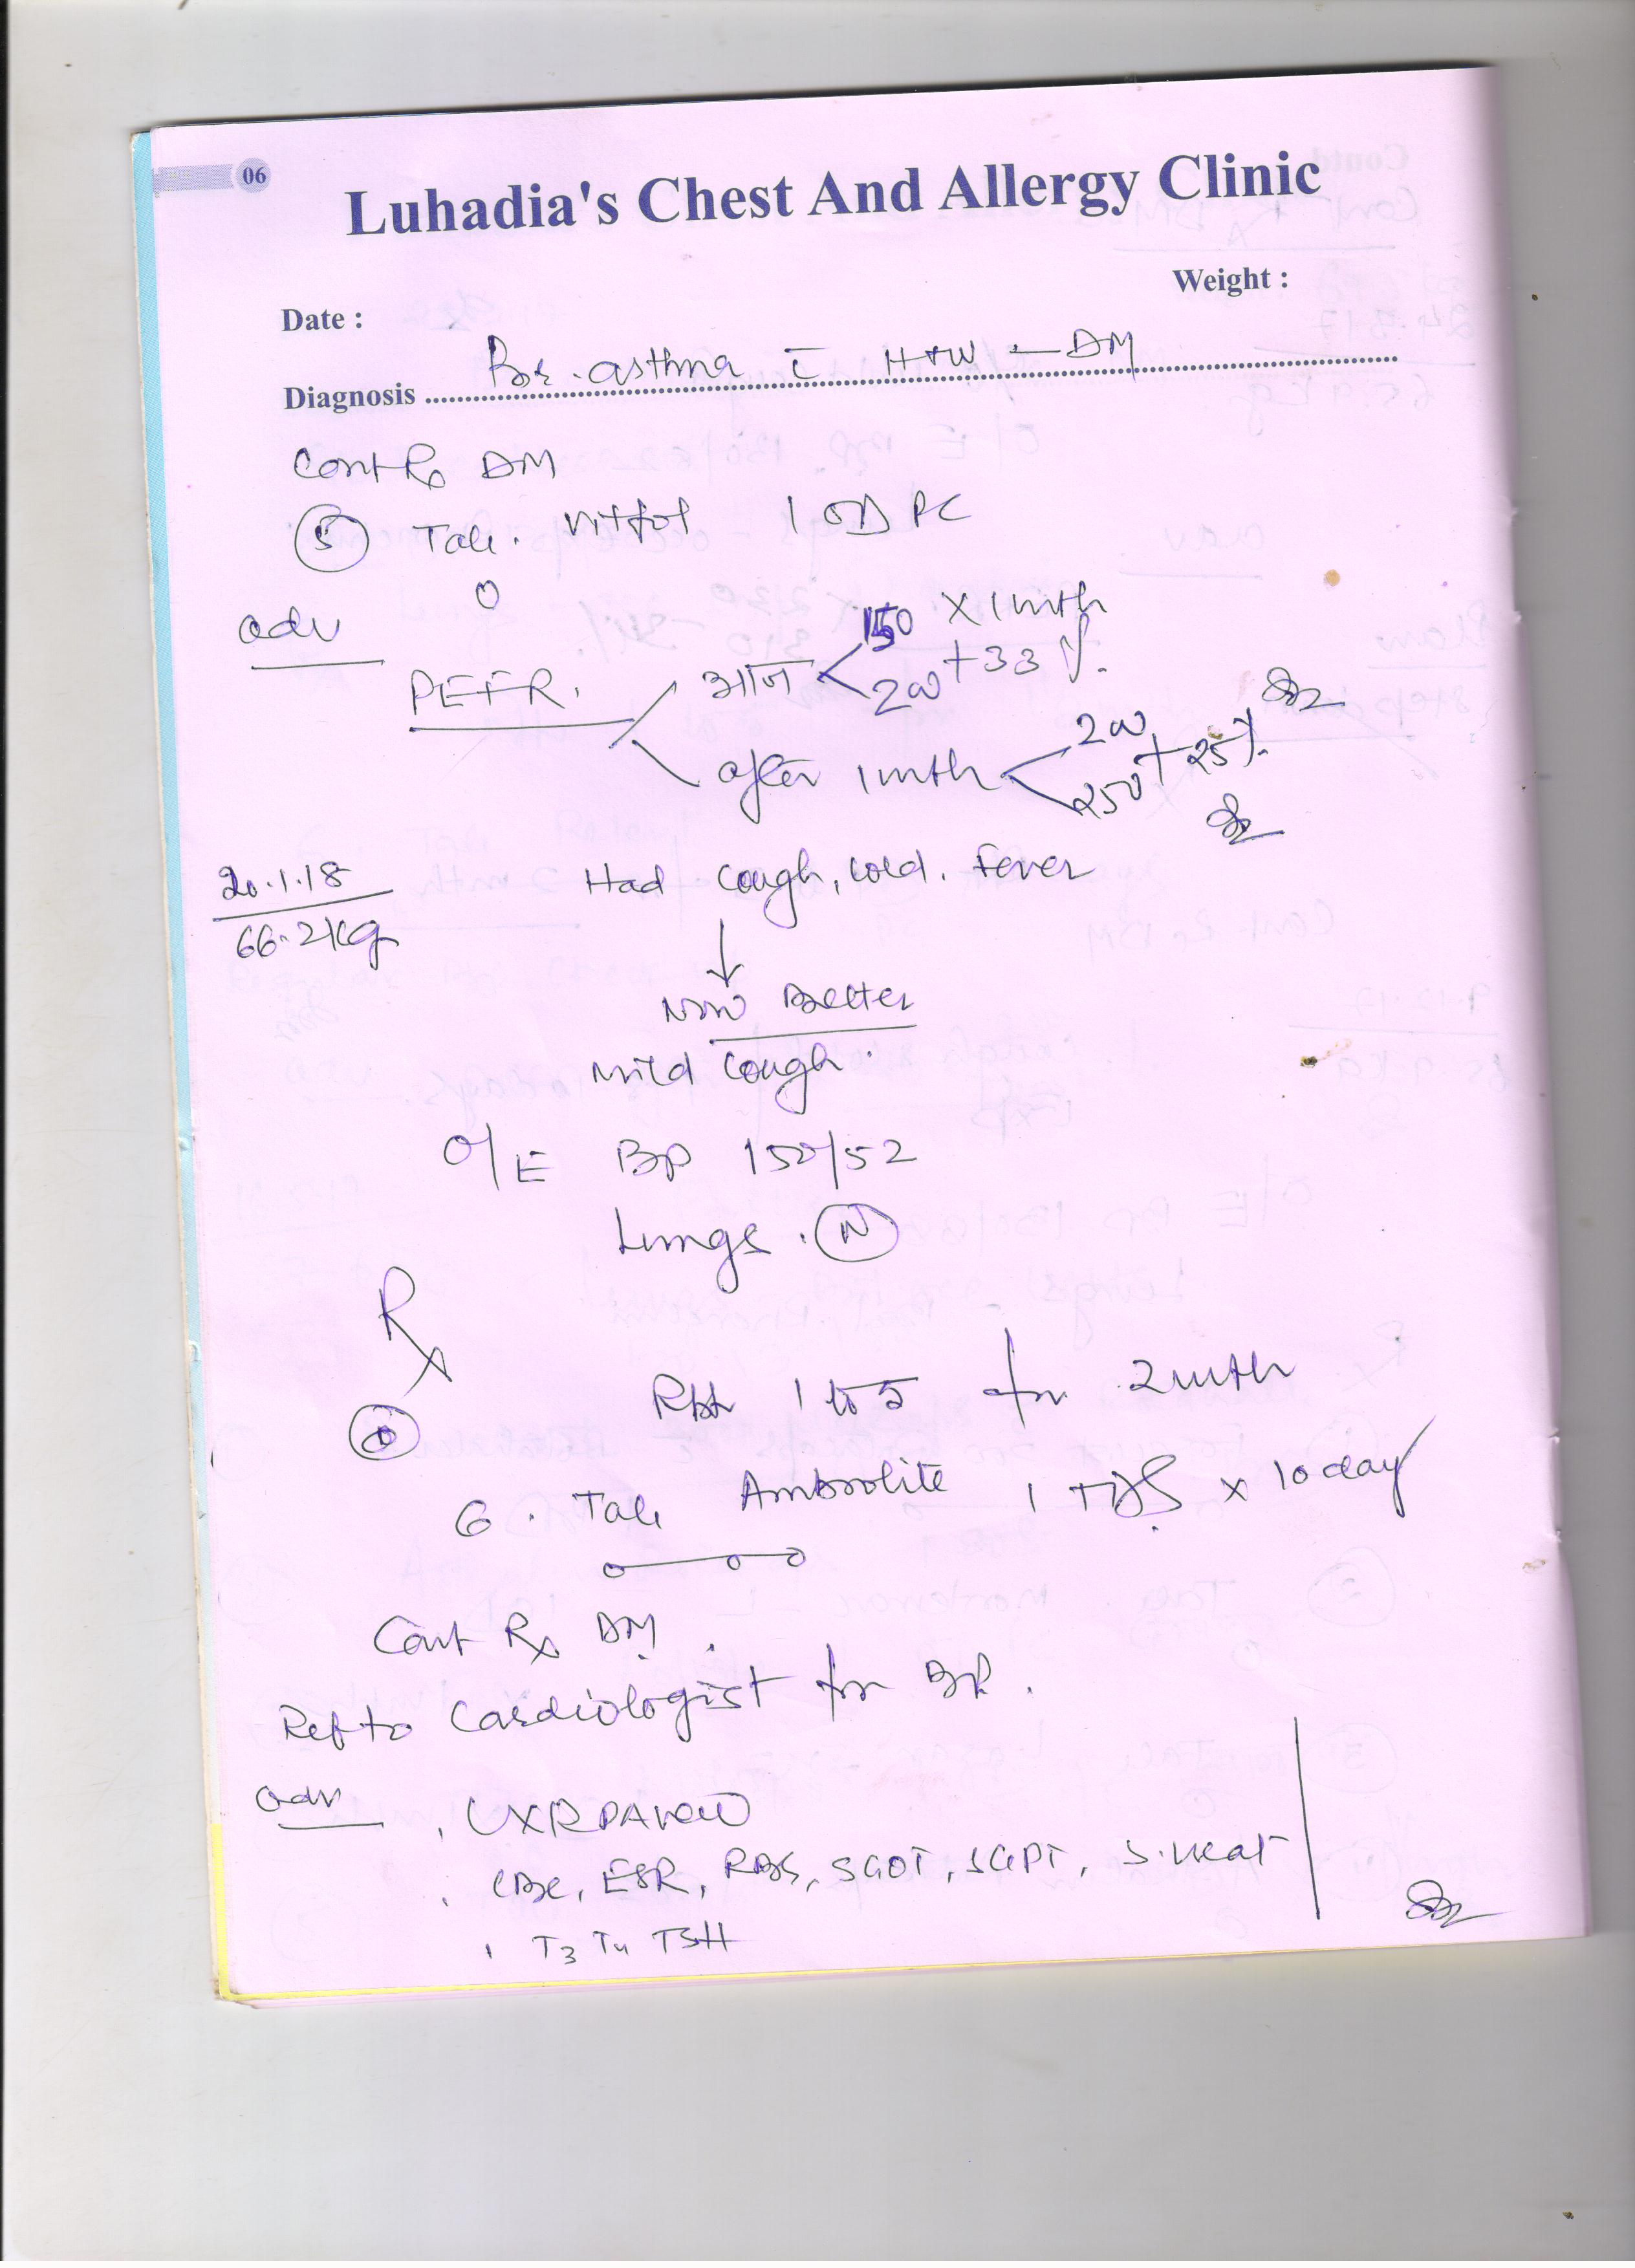 06
Luhadia's Chest And Allergy Clinic
Weight :
Date :
Diagnosis Br. asthma c̄ HTN - DM
Cont Rx DM
5 Tab. 1 OD PC
adv × 1 mth
PEFR. आज 150 200 +33%.
after 1 mth 200 250 +25%.
20.1.18 Had cough, cold. Fever
66.2 kg
↓
Now Better
Mild cough.
O/E BP 150/52
Lungs. N
Rx
Rpt 1 to 5 for 2 mth
6. Tab Ambrolite 1 TDS × 10 day
Cont Rx DM.
Ref to Cardiologist for BP.
adv . CXR PA view
. CBC, ESR, RBS, SGOT, SGPT, S.
. T3 T4 TSH